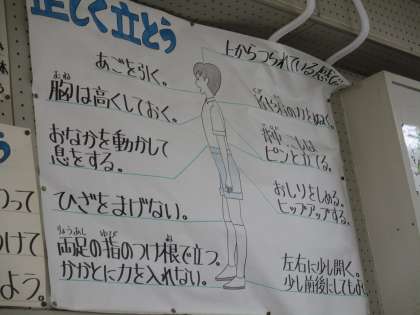 正しく立とう
上からつられている感じ
あごを引く。
胸は高くしておく。
おなかを動かして
息をする。
ひざをまげない。
両足の指のつけ根で立つ。
かかとに力を入れない。
の力をぬく。
ピンと立てる。
おしりをしめる。
ヒップアップする。
左右に少し開く。
少し前後にしても
って
つけて
よう。